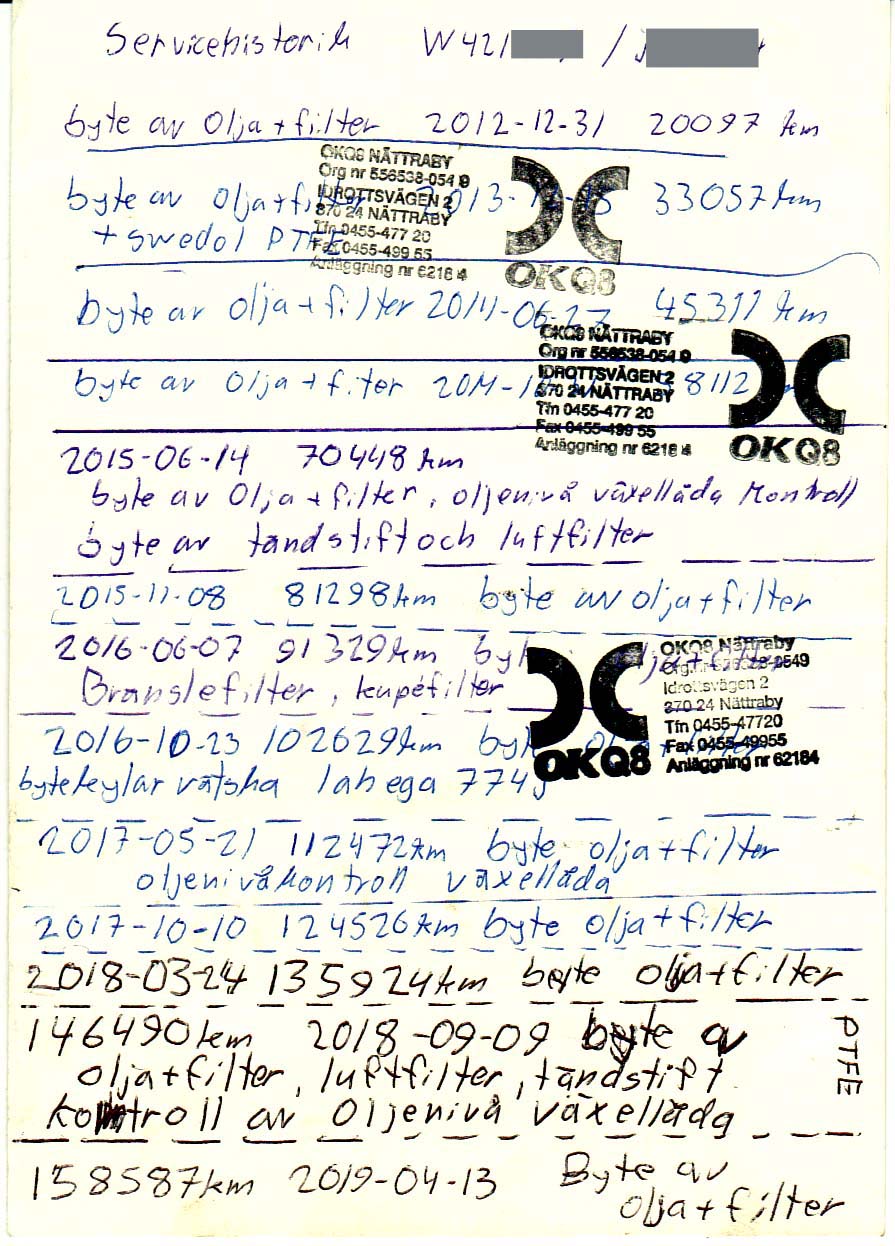 Servicehistorik W421 /
byte av olja + filter 2012-12-31 20097 km
OKQ8 NÄTTRABY
Org nr 556538-054 9
IDROTTSVÄGEN 2
370 24 NÄTTRABY
Tfn 0455-477 20
Fax 0455-499 55
Anläggning nr 6218 4
OKQ8
byte av olja + filter 2013-12- 33057 km
+ swedol PTFE
byte av olja + filter 2014-06-27 45311 km
OKQ8 NÄTTRABY
Org nr 556538-054 9
IDROTTSVÄGEN 2
370 24 NÄTTRABY
Tfn 0455-477 20
Fax 0455-499 55
Anläggning nr 6218 4
OKQ8
byte av olja + filter 8112
2015-06-14 70448 km
byte av olja + filter, oljenivå växellåda kontroll
byte av tändstift och luftfilter
2015-11-08 81298 km byte av olja + filter
2016-06-07 91329 km olja + filter
Bränslefilter, kupéfilter
OKQ8
OKQ8 Nättraby
Idrottsvägen 2
370 24 Nättraby
Tfn 0455-47720
Fax 0455-49955
Anläggning nr 62184
2016-10-23 102629 km
byte kylar vätska lahega 774
2017-05-21 112472 km byte olja + filter
oljenivåkontroll växellåda
2017-10-10 124526 km byte olja + filter
2018-03-24 135924 km byte olja + filter
146490 km 2018-09-09 byte av
olja + filter, luftfilter, tändstift
kontroll av Oljenivå växellåda
PTFE
158587 km 2019-04-13 Byte av
olja + filter